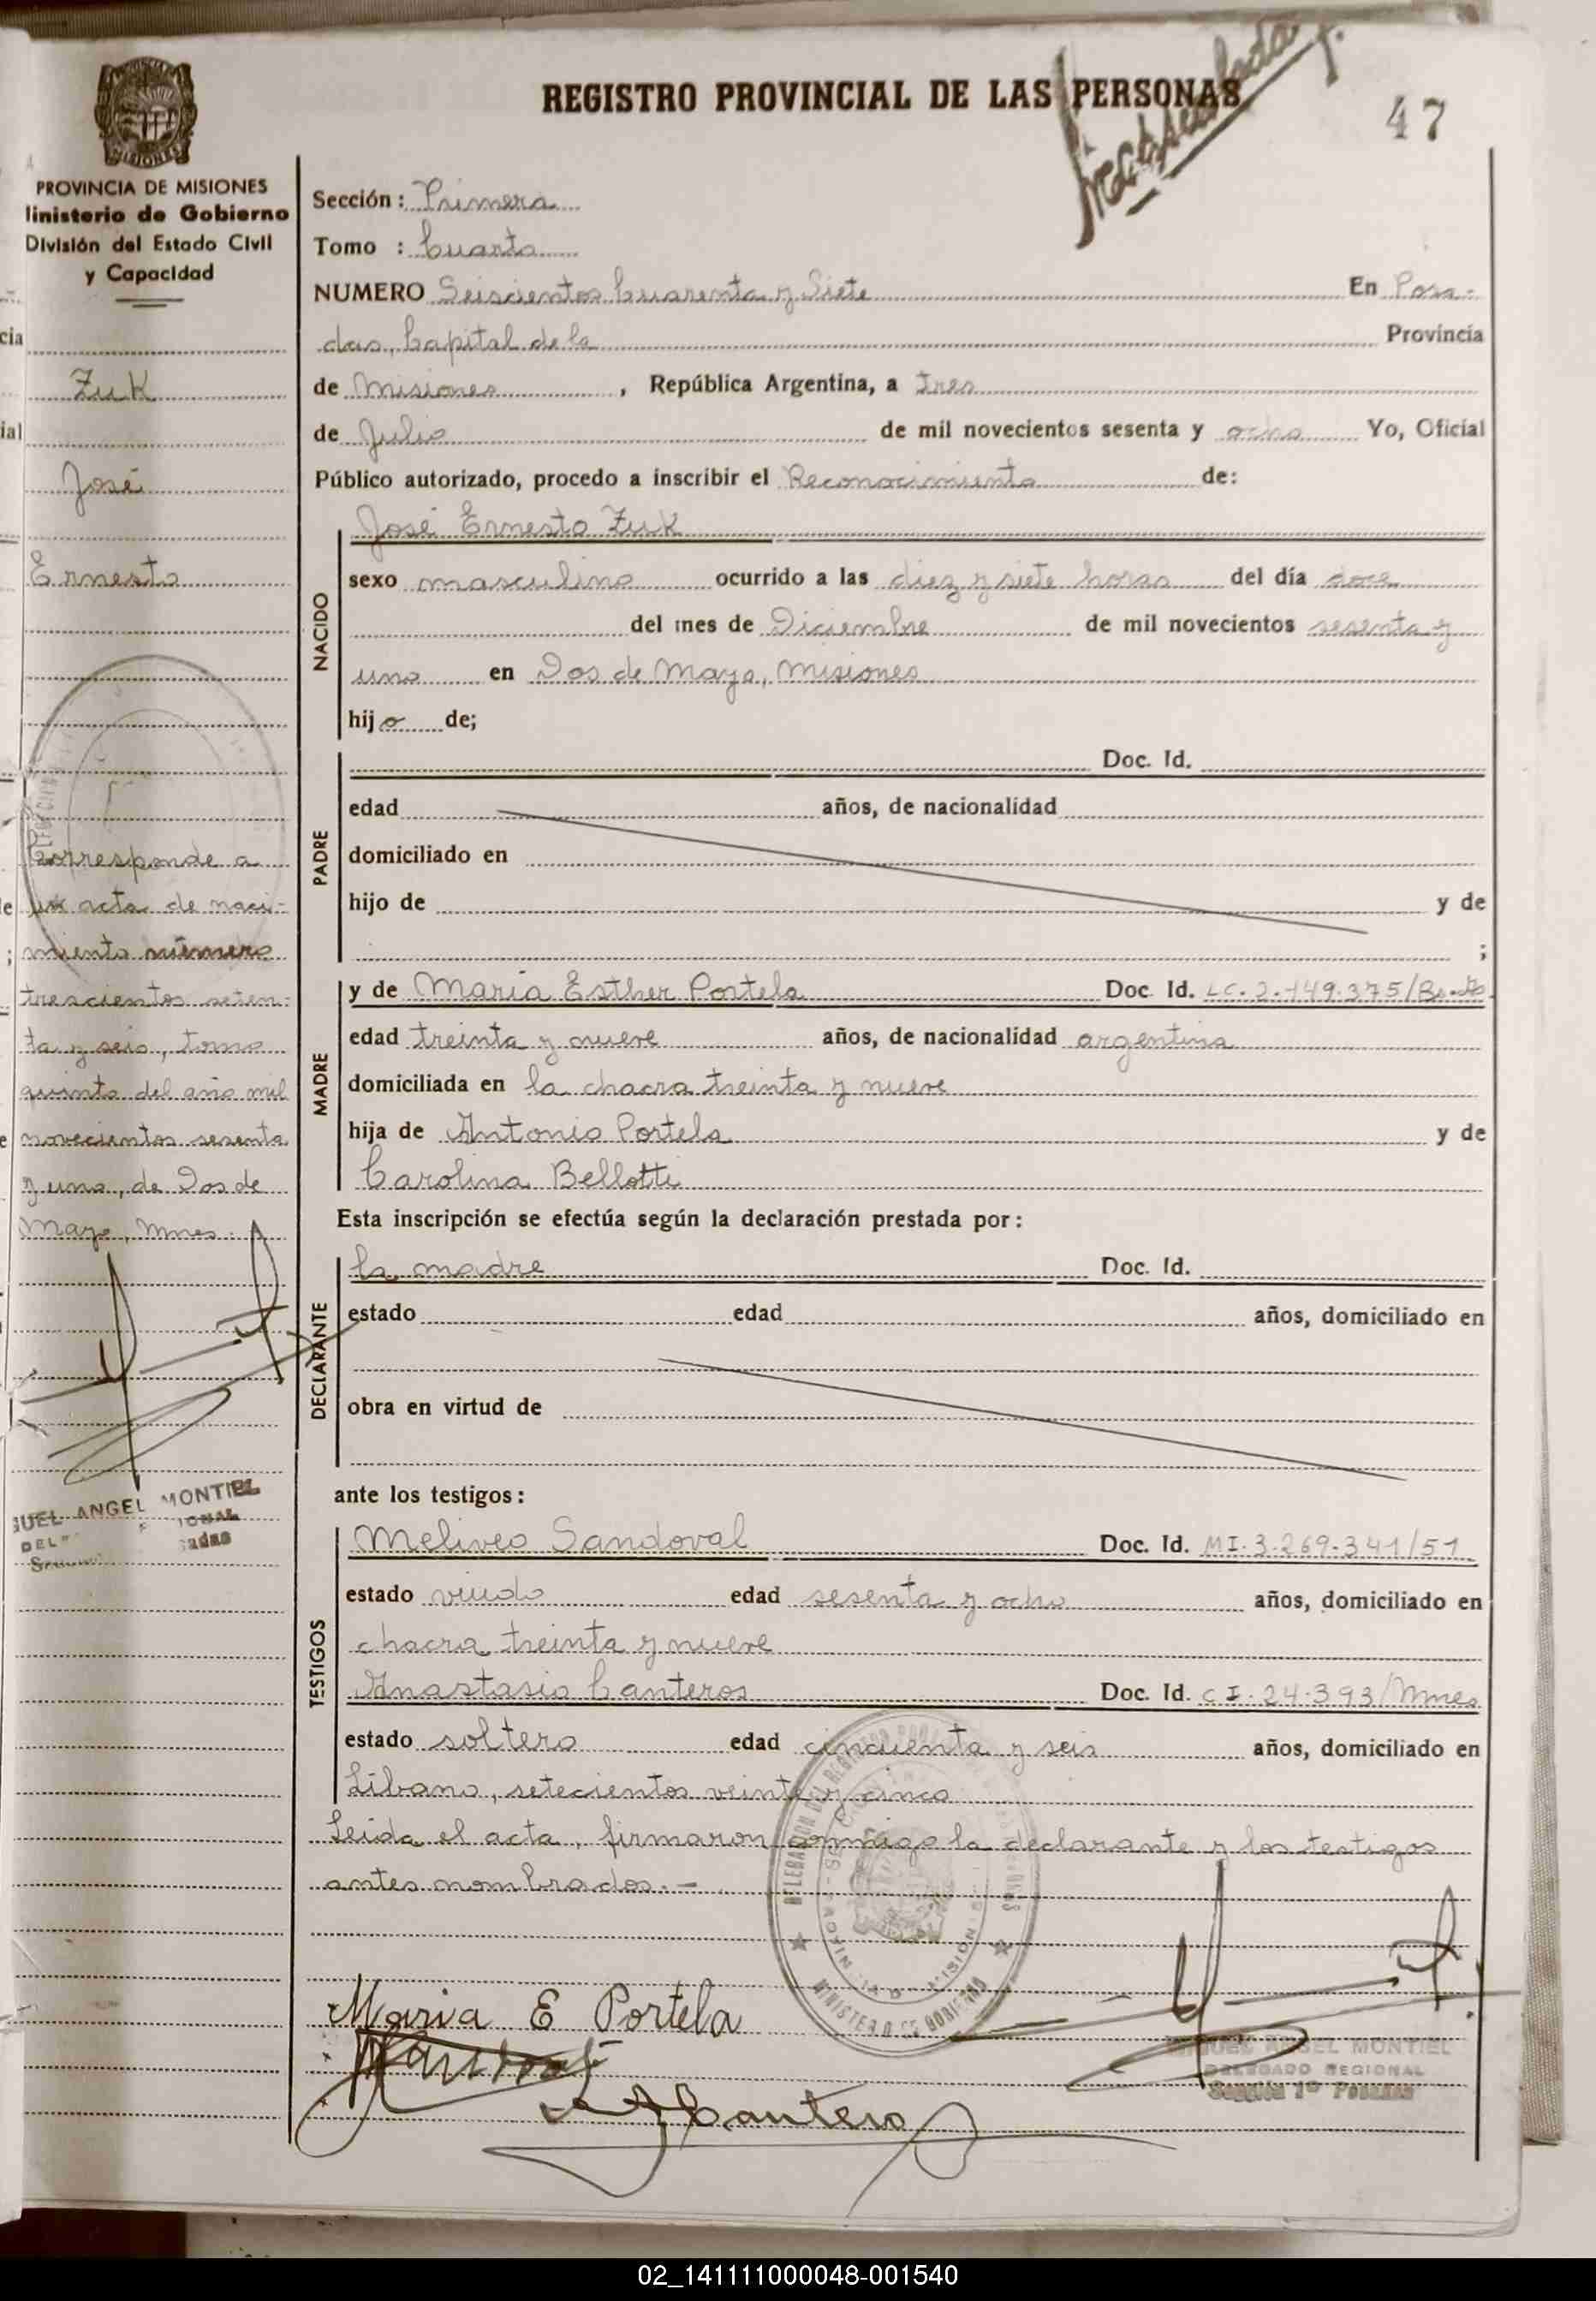 REGISTRO PROVINCIAL DE LAS PERSONAS
47
MISIONES
PROVINCIA DE MISIONES
Ministerio de Gobierno
División del Estado Civil
y Capacidad
cia
Zuk
ial
José
Ernesto
Corresponde a
acta de naci-
miento número
trescientos seten-
ta y seis, tomo
quinto del año mil
novecientos sesenta
y uno, de Dos de
Mayo, Mnes.
GUEL ANGEL MONTIEL
Sección: Primera
Tomo : Cuarto
NUMERO Seiscientos Cuarenta y Siete En Posa-
das, Capital de la Provincia
de Misiones, República Argentina, a tres
de Julio de mil novecientos sesenta y ocho Yo, Oficial
Público autorizado, procedo a inscribir el Reconocimiento de:
NACIDO
José Ernesto Zuk
sexo masculino ocurrido a las diez y siete horas del día doce
del mes de Diciembre de mil novecientos sesenta y
uno en Dos de Mayo, Misiones
hijo de;
PADRE
Doc. Id.
edad años, de nacionalidad
domiciliado en
hijo de y de
;
MADRE
y de Maria Esther Portela Doc. Id. LC. 2.749.375/
edad treinta y nueve años, de nacionalidad argentina
domiciliada en la chacra treinta y nueve
hija de Antonio Portela y de
Carolina Bellotti
Esta inscripción se efectúa según la declaración prestada por:
DECLARANTE
la madre Doc. Id.
estado edad años, domiciliado en
obra en virtud de
ante los testigos:
TESTIGOS
Meliveo Sandoval Doc. Id. MI. 3.269.341/51
estado viudo edad sesenta y ocho años, domiciliado en
chacra treinta y nueve
Anastasio Canteros Doc. Id. CI. 24.393/Mnes
estado soltero edad cincuenta y seis años, domiciliado en
Libano, setecientos veinte y cinco
Leida el acta, firmaron conmigo la declarante y los testigos
antes nombrados.-
MINISTERIO DE GOBIERNO
Maria E Portela
Canteros
MIGUEL ANGEL MONTIEL
DELEGADO REGIONAL
Sección 1º Posadas
02_141111000048-001540